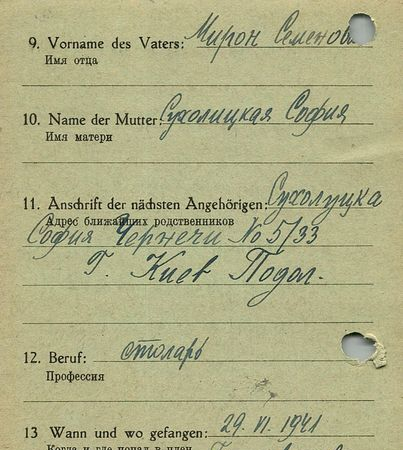 9. Vorname des Vaters: Мирон Семенов
Имя отца
10. Name der Mutter: Сухолицкая София
Имя матери
11. Anschrift der nächsten Angehörigen: Сухолуцка
Адрес ближайших родственников
София Чернечи No 5/33
Г. Киев Подол.
12. Beruf: столарь
Профессия
13 Wann und wo gefangen: 29. VI. 1941
Когда и где попал в плен